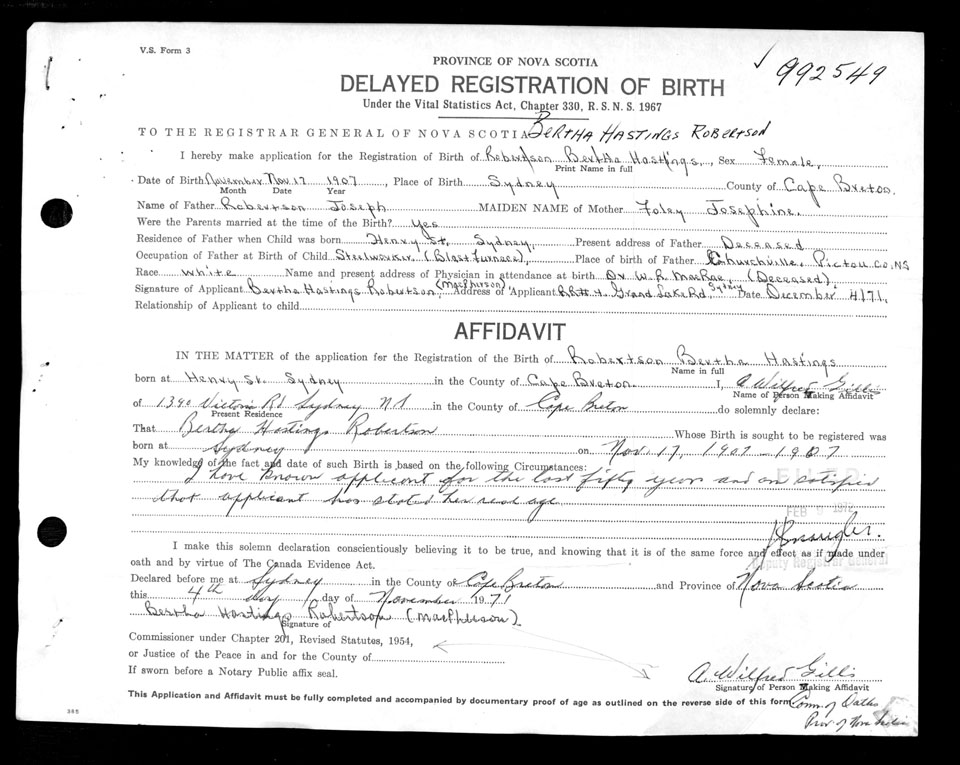 V.S. Form 3
992549
PROVINCE OF NOVA SCOTIA
DELAYED REGISTRATION OF BIRTH
Under the Vital Statistics Act, Chapter 330, R.S.N.S. 1967
TO THE REGISTRAR GENERAL OF NOVA SCOTIA BERTHA HASTINGS ROBERTSON
I hereby make application for the Registration of Birth of Robertson Bertha Hastings, Sex Female,
Print Name in full
Date of Birth November Nov. 17 1907, Place of Birth Sydney County of Cape Breton.
Month Date Year
Name of Father Robertson Joseph MAIDEN NAME of Mother Foley Josephine.
Were the Parents married at the time of the Birth? Yes
Residence of Father when Child was born Henry St. Sydney, Present address of Father Deceased
Occupation of Father at Birth of Child Steelworker, (Blast Furnace) Place of birth of Father Churchville, Pictou Co. NS
Race White Name and present address of Physician in attendance at Birth Dr W. R. MacRae, (Deceased)
Signature of Applicant Bertha Hastings Robertson (MacPherson) Address of Applicant R.R# 4 Grand Lake Rd, Sydney Date December 4/71,
Relationship of Applicant to child
AFFIDAVIT
IN THE MATTER of the application for the Registration of the Birth of Robertson Bertha Hastings
Name in full
born at Henry St. Sydney in the County of Cape Breton. I, A Wilfred Gillis
Name of Person Making Affidavit
of 1390 Victoria Rd Sydney NS in the County of Cape Breton do solemnly declare:
Present Residence
That Bertha Hastings Robertson Whose Birth is sought to be registered was
born at Sydney on Nov. 17, 1907 - 1907
My knowledge of the fact and date of such Birth is based on the following Circumstances:
I have known applicant for the last fifty years and am satisfied
that applicant has stated her real age
FEB
Deputy Registrar General
I make this solemn declaration conscientiously believing it to be true, and knowing that it is of the same force and effect as if made under
oath and by virtue of The Canada Evidence Act.
Declared before me at Sydney in the County of Cape Breton and Province of Nova Scotia
this 4th day day of November 1971
Bertha Hastings Robertson (MacPherson)
Signature of
Commissioner under Chapter 201, Revised Statutes, 1954,
or Justice of the Peace in and for the County of
If sworn before a Notary Public affix seal.
A. Wilfred Gillis
Signature of Person Making Affidavit
This Application and Affidavit must be fully completed and accompanied by documentary proof of age as outlined on the reverse side of this form
Comm of Oaths
Prov of Nova Scotia
365